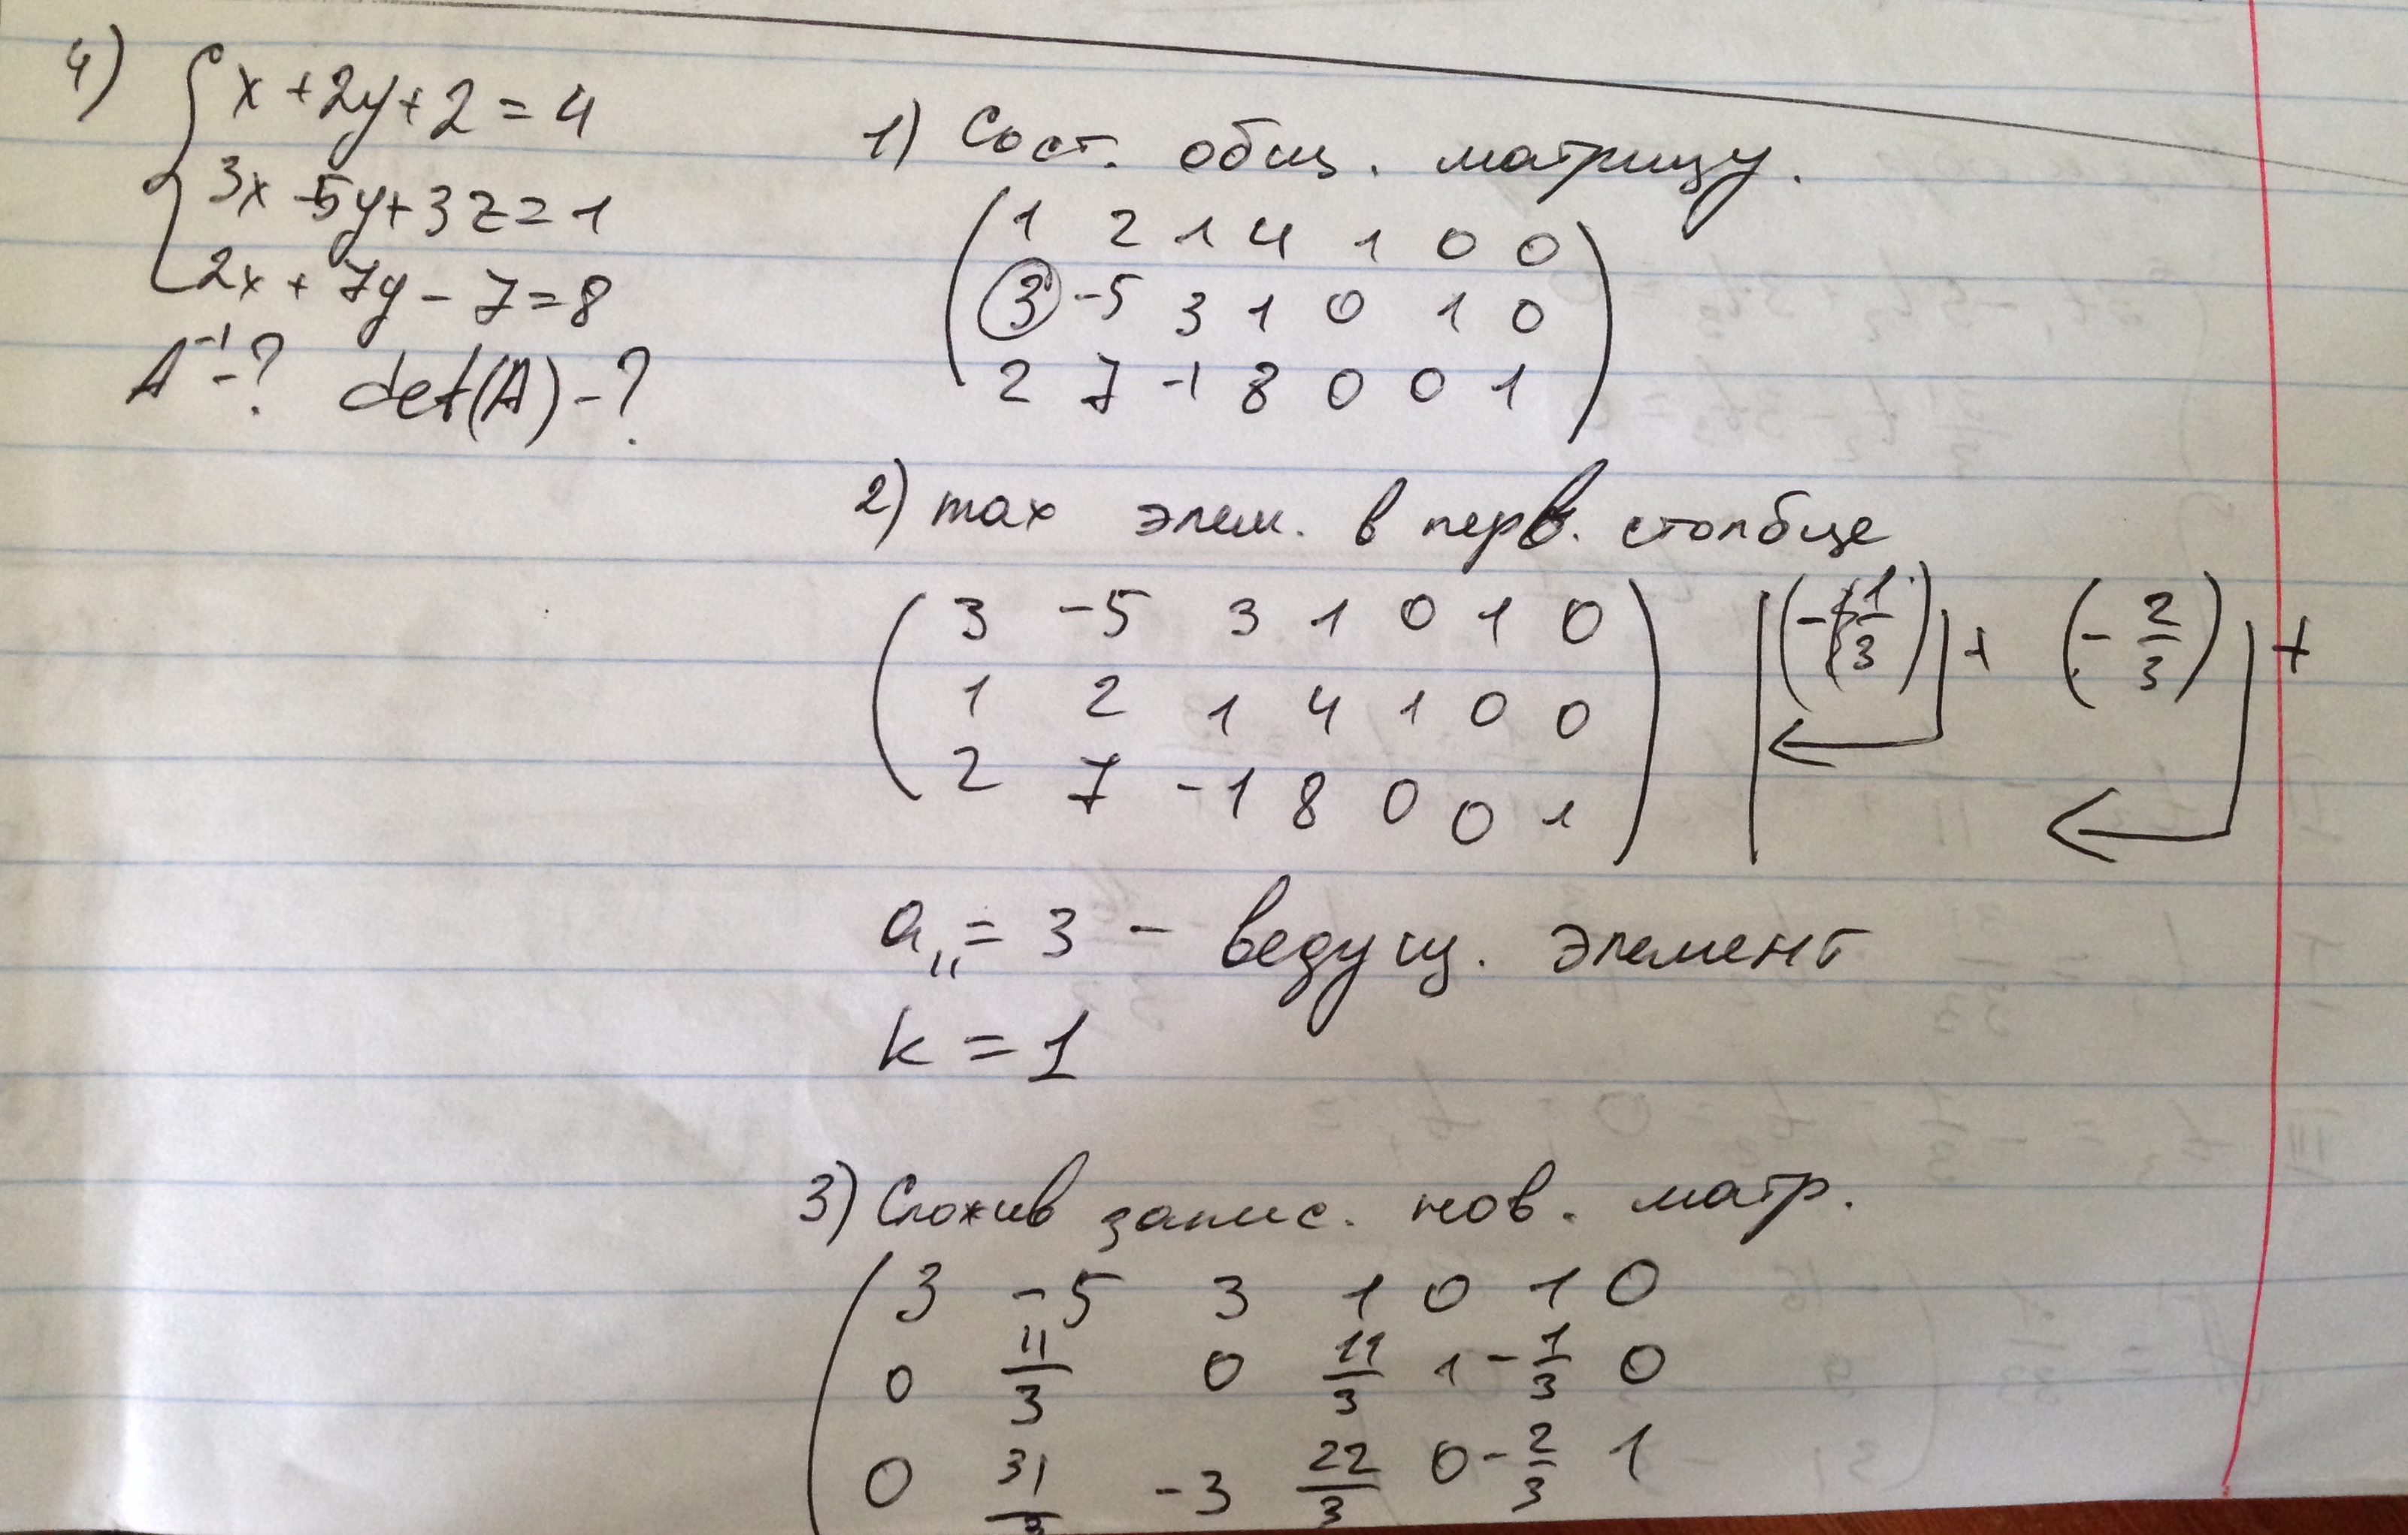 4) x + 2y + z = 4
3x - 5y + 3z = 1
2x + 7y - z = 8
A⁻¹ - ? det(A) - ?
1) Сост. общ. матрицу.
1 2 1 4 1 0 0
3 -5 3 1 0 1 0
2 7 -1 8 0 0 1
2) max элем. в перв. столбце
3 -5 3 1 0 1 0 | (-1/3) + (-2/3) +
1 2 1 4 1 0 0
2 7 -1 8 0 0 1
a₁₁ = 3 - ведущ. элемент
k = 1
3) Сложив запис. нов. матр.
3 -5 3 1 0 1 0
0 11/3 0 11/3 1 -1/3 0
0 31/3 -3 22/3 0 -2/3 1